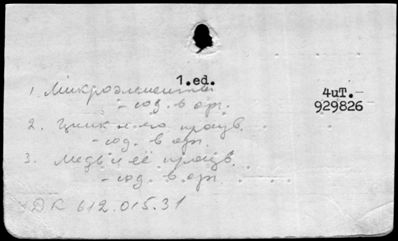 1.ed.
1. Микроэлементы
- сод. в орг.
4иТ.-
929826
2. Цинк и его произв.
- сод. в орг.
3. Медь и её произв.
- сод. в орг.
УДК 612.015.31